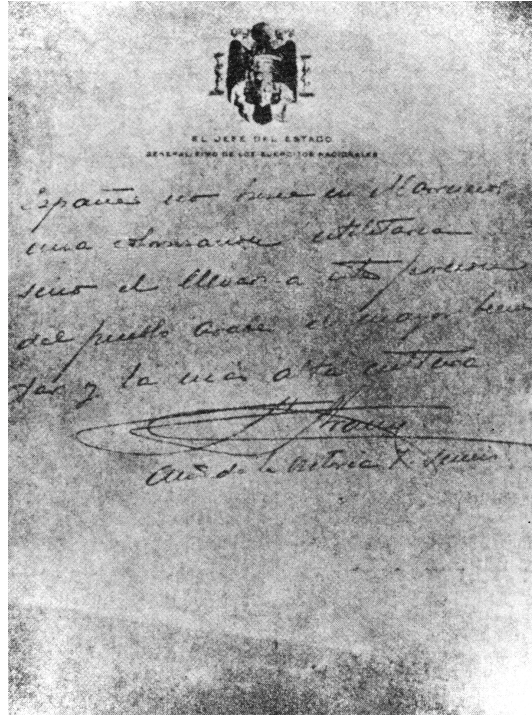 EL JEFE DEL ESTADO
GENERALISIMO DE LOS EJERCITOS NACIONALES
España no tiene en Marruecos
una utilitaria
sino el llevar a esta
del pueblo arabe el mayor bienes
tar y la más alta cultura
F Franco
Año de la Victoria